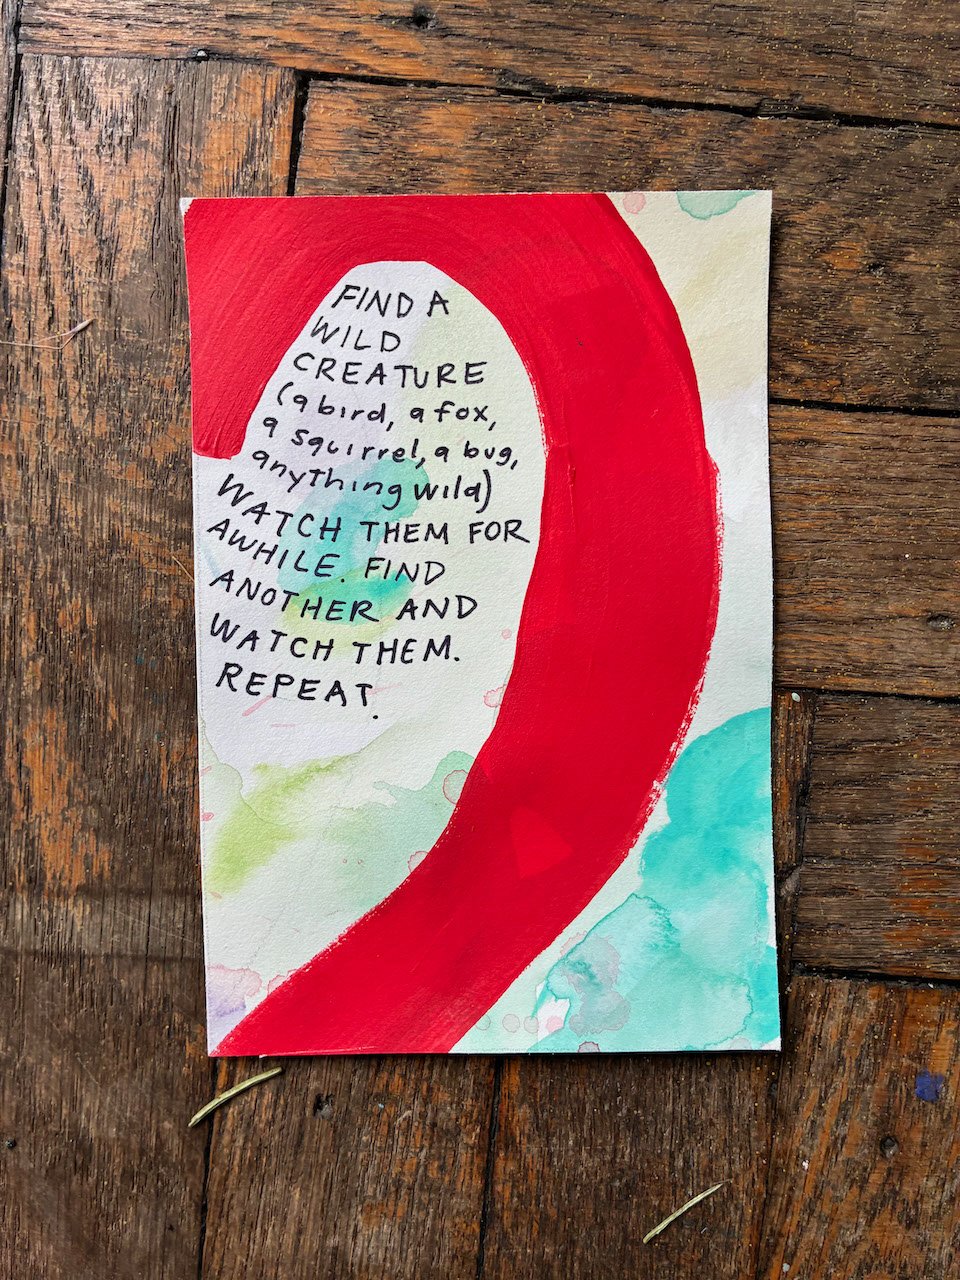 FIND A
WILD
CREATURE
(a bird, a fox,
a squirrel, a bug,
anything wild)
WATCH THEM FOR
AWHILE. FIND
ANOTHER AND
WATCH THEM.
REPEAT.